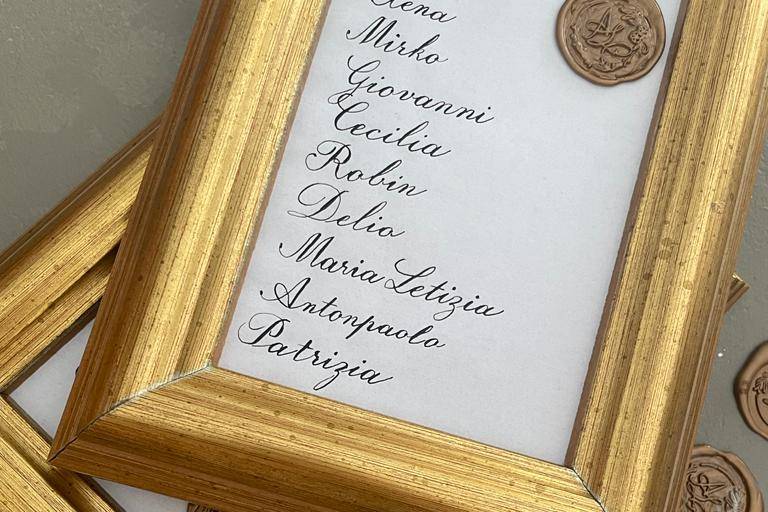 Mirko
Giovanni
Cecilia
Robin
Delio
Maria Letizia
Antonpaolo
Patrizia